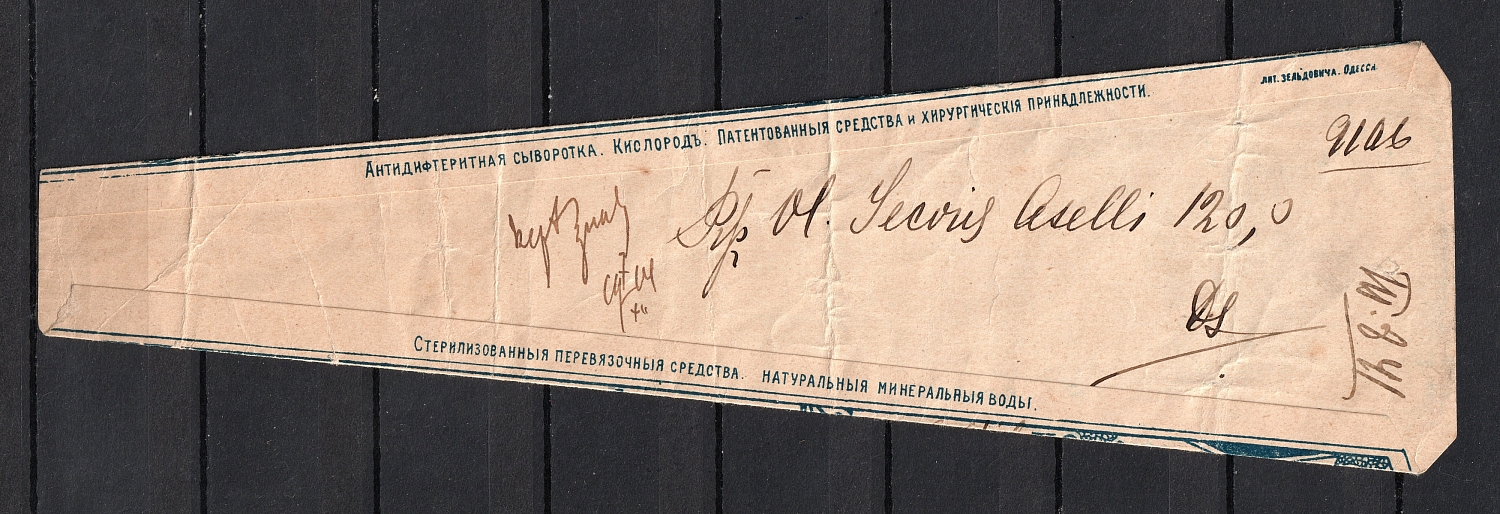 лит. Зельдовича. Одесса.
Антидифтеритная сыворотка. Кислородъ. Патентованныя средства и хирургическія принадлежности.
Rp Ol. Jecoris Aselli 120,0
Ds
Стерилизованныя перевязочныя средства. натуральныя минеральныя воды.